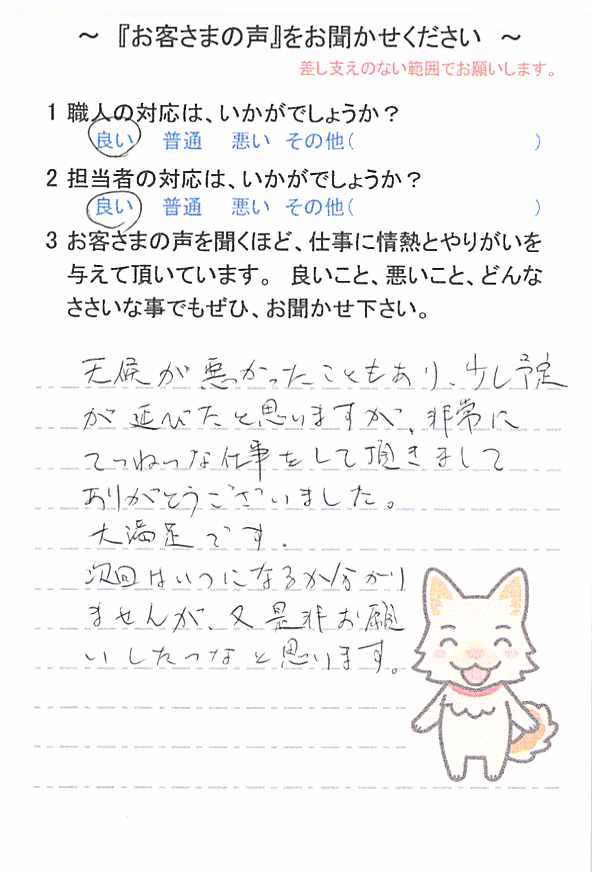 ～ 『お客さまの声』をお聞かせください ～
差し支えのない範囲でお願いします。
1 職人の対応は、いかがでしょうか？
良い 普通 悪い その他( )
2 担当者の対応は、いかがでしょうか？
良い 普通 悪い その他( )
3 お客さまの声を聞くほど、仕事に情熱とやりがいを
与えて頂いています。 良いこと、悪いこと、どんな
ささいな事でもぜひ、お聞かせ下さい。
天候が悪かったこともあり、少し予定
が延びたと思いますが、非常に
てっねっな仕事をして頂きまして
ありがとうございました。
大満足です.
次回はいつになるか分かり
ませんが、又是非お願
いしたっなと思います。